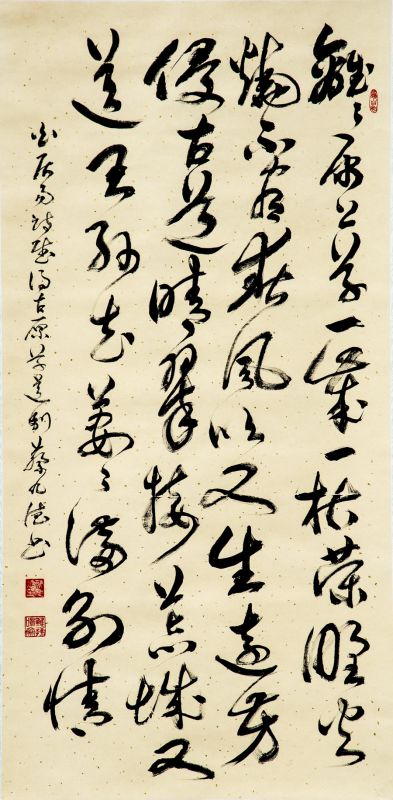 離〻原上草一歲一枯榮野火
燒不盡春風吹又生遠芳
侵古道晴翠接荒城又
送王孫去萋〻滿別情
白居易詩賦得古原草送別 蔡九書